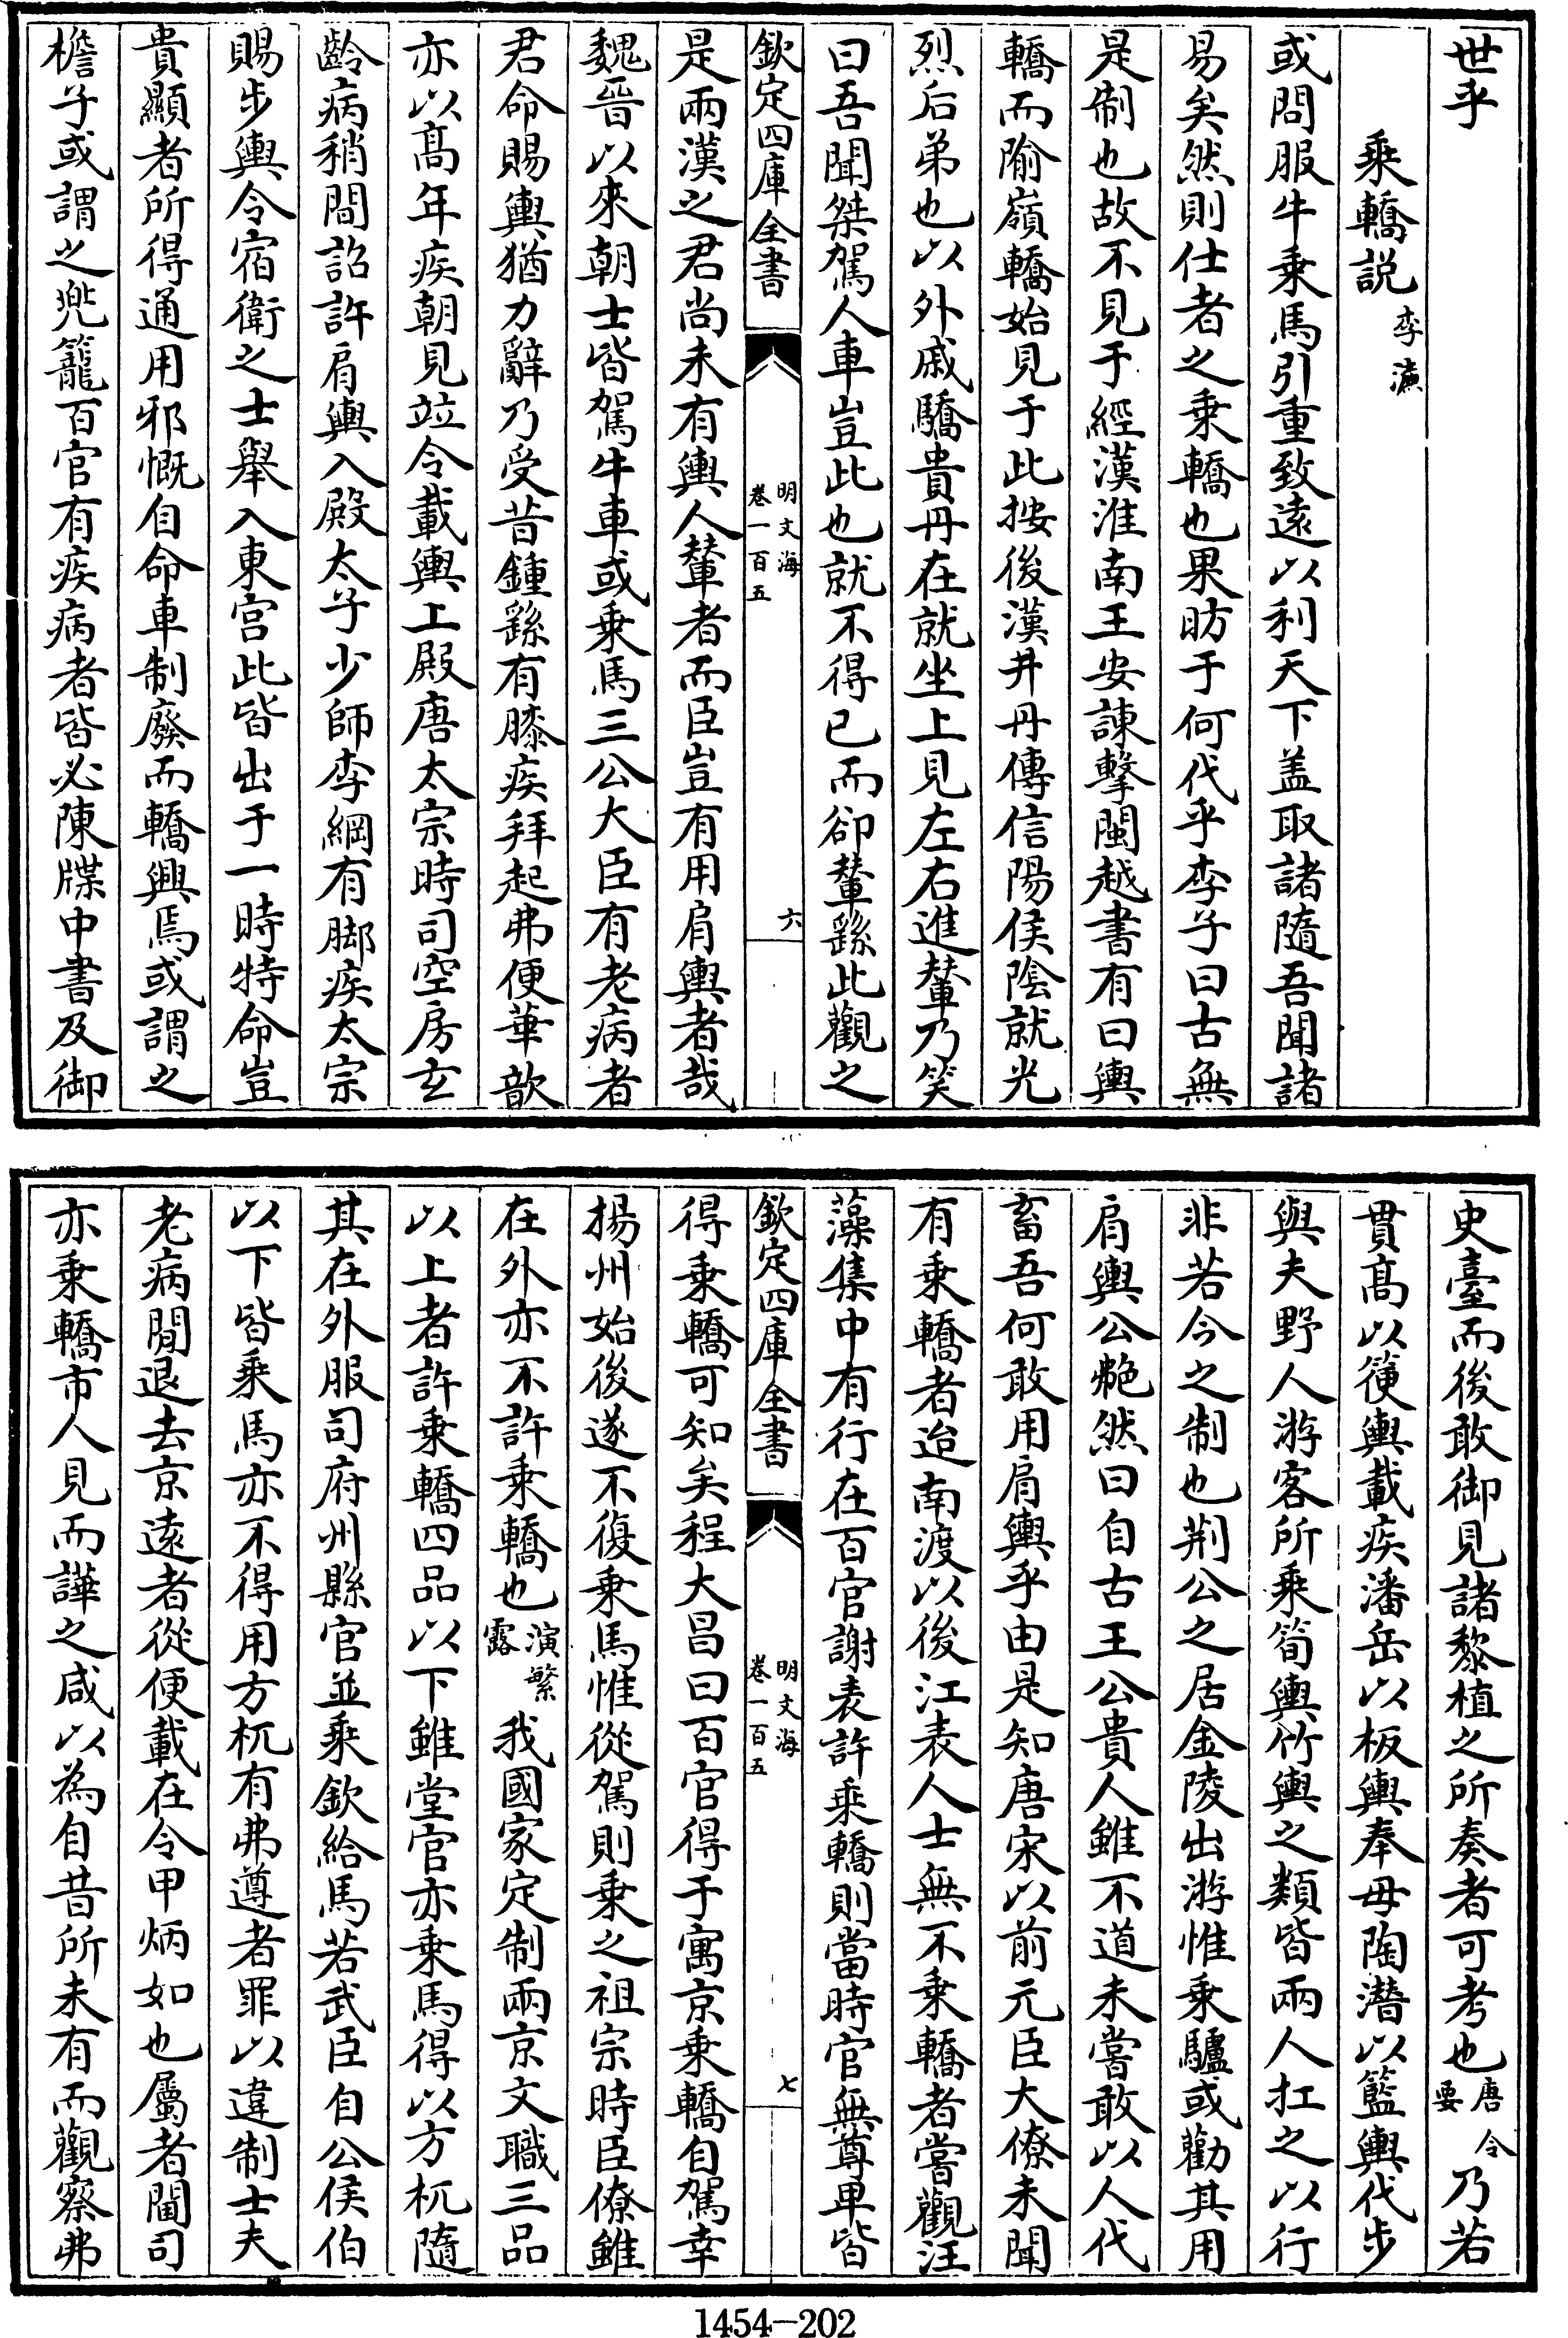 世乎
乘轎説 李濂
或問服牛乘馬引重致遠以利天下盖取諸隨吾聞諸
易矣然則仕者之乘轎也果昉于何代乎李子曰古無
是制也故不見于經漢淮南王安諫擊閩越書有曰輿
轎而隃嶺轎始見于此按後漢井丹傳信陽侯陰就光
烈后弟也以外戚驕貴丹在就坐上見左右進輦乃笑
曰吾聞桀駕人車豈此也就不得已而卻輦繇此觀之
欽定四庫全書 明文海 卷一百五 六
是兩漢之君尚未有輿人輦者而臣豈有用肩輿者哉
魏晉以來朝士皆駕牛車或乘馬三公大臣有老病者
君命賜輿猶力辭乃受昔鍾繇有膝疾拜起弗便華歆
亦以髙年疾朝見竝令載輿上殿唐太宗時司空房玄
齡病稍間詔許肩輿入殿太子少師李綱有脚疾太宗
賜步輿令宿衛之士舉入東宫此皆出于一時特命豈
貴顯者所得通用邪慨自命車制廢而轎興焉或謂之
檐子或謂之兠籠百官有疾病者皆必陳牒中書及御
史臺而後敢御見諸黎植之所奏者可考也唐令要乃若
貫髙以箯輿載疾潘岳以板輿奉母陶潜以籃輿代步
與夫野人游客所乘筍輿竹輿之類皆兩人扛之以行
非若今之制也荆公之居金陵出游惟乘驢或勸其用
肩輿公艴然曰自古王公貴人雖不道未嘗敢以人代
畜吾何敢用肩輿乎由是知唐宋以前元臣大僚未聞
有乘轎者迨南渡以後江表人士無不乘轎者嘗觀汪
藻集中有行在百官謝表許乘轎則當時官無尊卑皆
欽定四庫全書 明文海 卷一百五 七
得乘轎可知矣程大昌曰百官得于寓京乘轎自駕幸
揚州始後遂不復乘馬惟從駕則乘之祖宗時臣僚雖
在外亦不許乘轎也演繁露我國家定制兩京文職三品
以上者許乘轎四品以下雖堂官亦乘馬得以方杌隨
其在外服司府州縣官並乘欽給馬若武臣自公侯伯
以下皆乘馬亦不得用方杌有弗遵者罪以違制士夫
老病閒退去京遠者從便載在令甲炳如也屬者閫司
亦乘轎市人見而譁之咸以為自昔所未有而觀察弗
1454-202